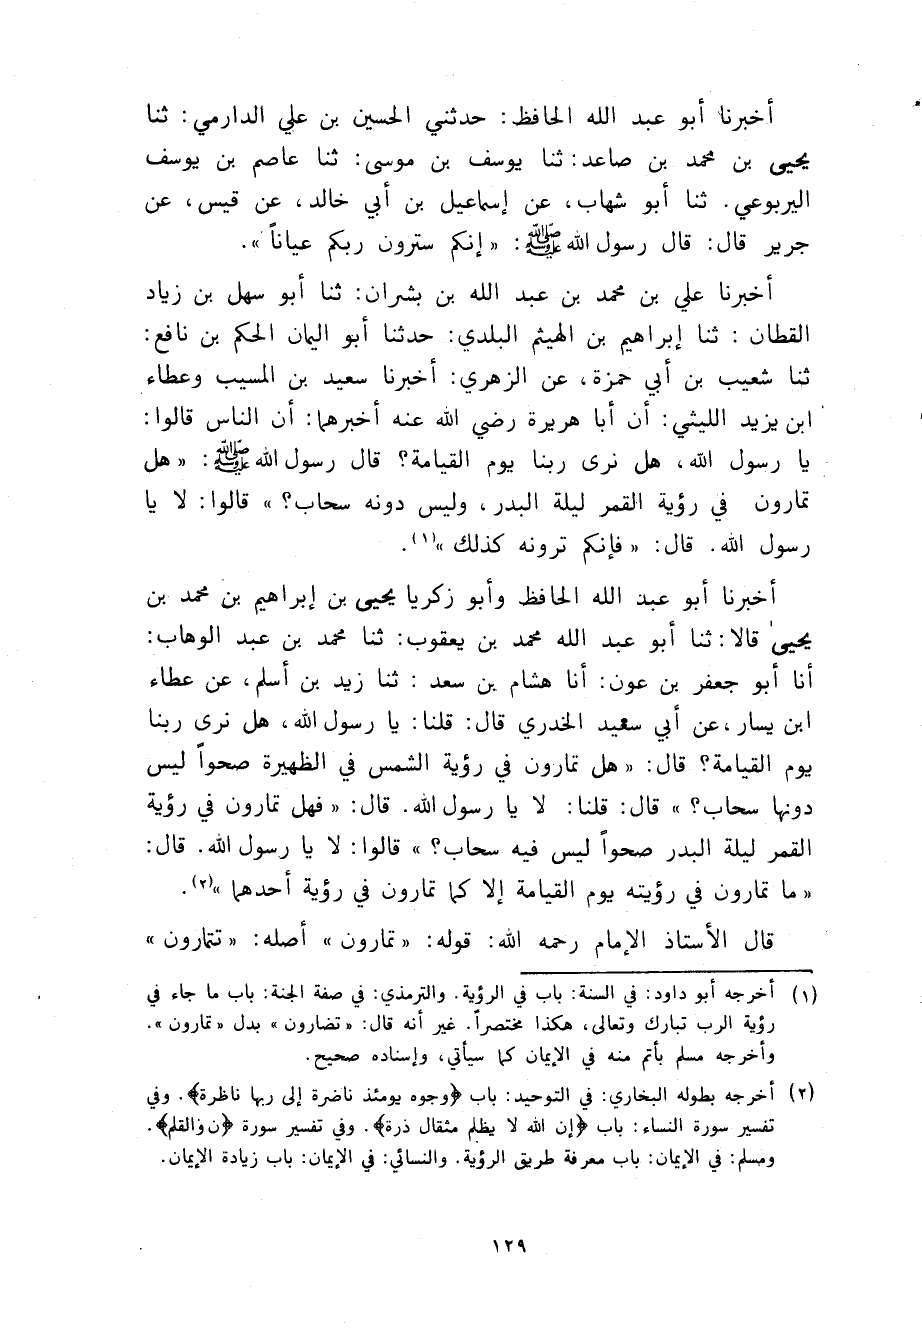 أخبرنا أبو عبد الله الحافظ: حدثني الحسين بن علي الدارمي: ثنا
يحيى بن محمد بن صاعد: ثنا يوسف بن موسى: ثنا عاصم بن يوسف
اليربوعي. ثنا أبو شهاب، عن إسماعيل بن أبي خالد، عن قيس، عن
جرير قال: قال رسول الله ﷺ: « إنكم سترون ربكم عياناً ».
أخبرنا علي بن محمد بن عبد الله بن بشران: ثنا أبو سهل بن زياد
القطان : ثنا إبراهيم بن الهيثم البلدي: حدثنا أبو اليمان الحكم بن نافع:
ثنا شعيب بن أبي حمزة، عن الزهري: أخبرنا سعيد بن المسيب وعطاء
ابن يزيد الليثي: أن أبا هريرة رضي الله عنه أخبرهما: أن الناس قالوا:
يا رسول الله، هل نرى ربنا يوم القيامة؟ قال رسول الله ﷺ: « هل
تمارون في رؤية القمر ليلة البدر، وليس دونه سحاب؟ » قالوا: لا يا
رسول الله. قال: « فإنكم ترونه كذلك »(١).
أخبرنا أبو عبد الله الحافظ وأبو زكريا يحيى بن إبراهيم بن محمد بن
يحيى قالا: ثنا أبو عبد الله محمد بن يعقوب: ثنا محمد بن عبد الوهاب:
أنا أبو جعفر بن عون: أنا هشام بن سعد : ثنا زيد بن أسلم، عن عطاء
ابن يسار، عن أبي سعيد الخدري قال: قلنا: يا رسول الله، هل نرى ربنا
يوم القيامة؟ قال: « هل تمارون في رؤية الشمس في الظهيرة صحواً ليس
دونها سحاب؟ » قال: قلنا: لا يا رسول الله. قال: « فهل تمارون في رؤية
القمر ليلة البدر صحواً ليس فيه سحاب؟ » قالوا: لا يا رسول الله. قال:
« ما تمارون في رؤيته يوم القيامة إلا كما تمارون في رؤية أحدهما »(٢).
قال الأستاذ الإمام رحمه الله: قوله: « تمارون » أصله: « تتمارون »
(١) أخرجه أبو داود: في السنة: باب في الرؤية. والترمذي: في صفة الجنة: باب ما جاء في
رؤية الرب تبارك وتعالى، هكذا مختصراً. غير أنه قال: « تضارون » بدل « تمارون ».
وأخرجه مسلم بأتم منه في الإيمان كما سيأتي، وإسناده صحيح.
(٢) أخرجه بطوله البخاري: في التوحيد: باب ﴿وجوه يومئذ ناضرة إلى ربها ناظرة﴾. وفي
تفسير سورة النساء: باب ﴿إن الله لا يظلم مثقال ذرة﴾. وفي تفسير سورة ﴿ن والقلم﴾.
ومسلم: في الإيمان: باب معرفة طريق الرؤية. والنسائي: في الإيمان: باب زيادة الإيمان.
١٢٩